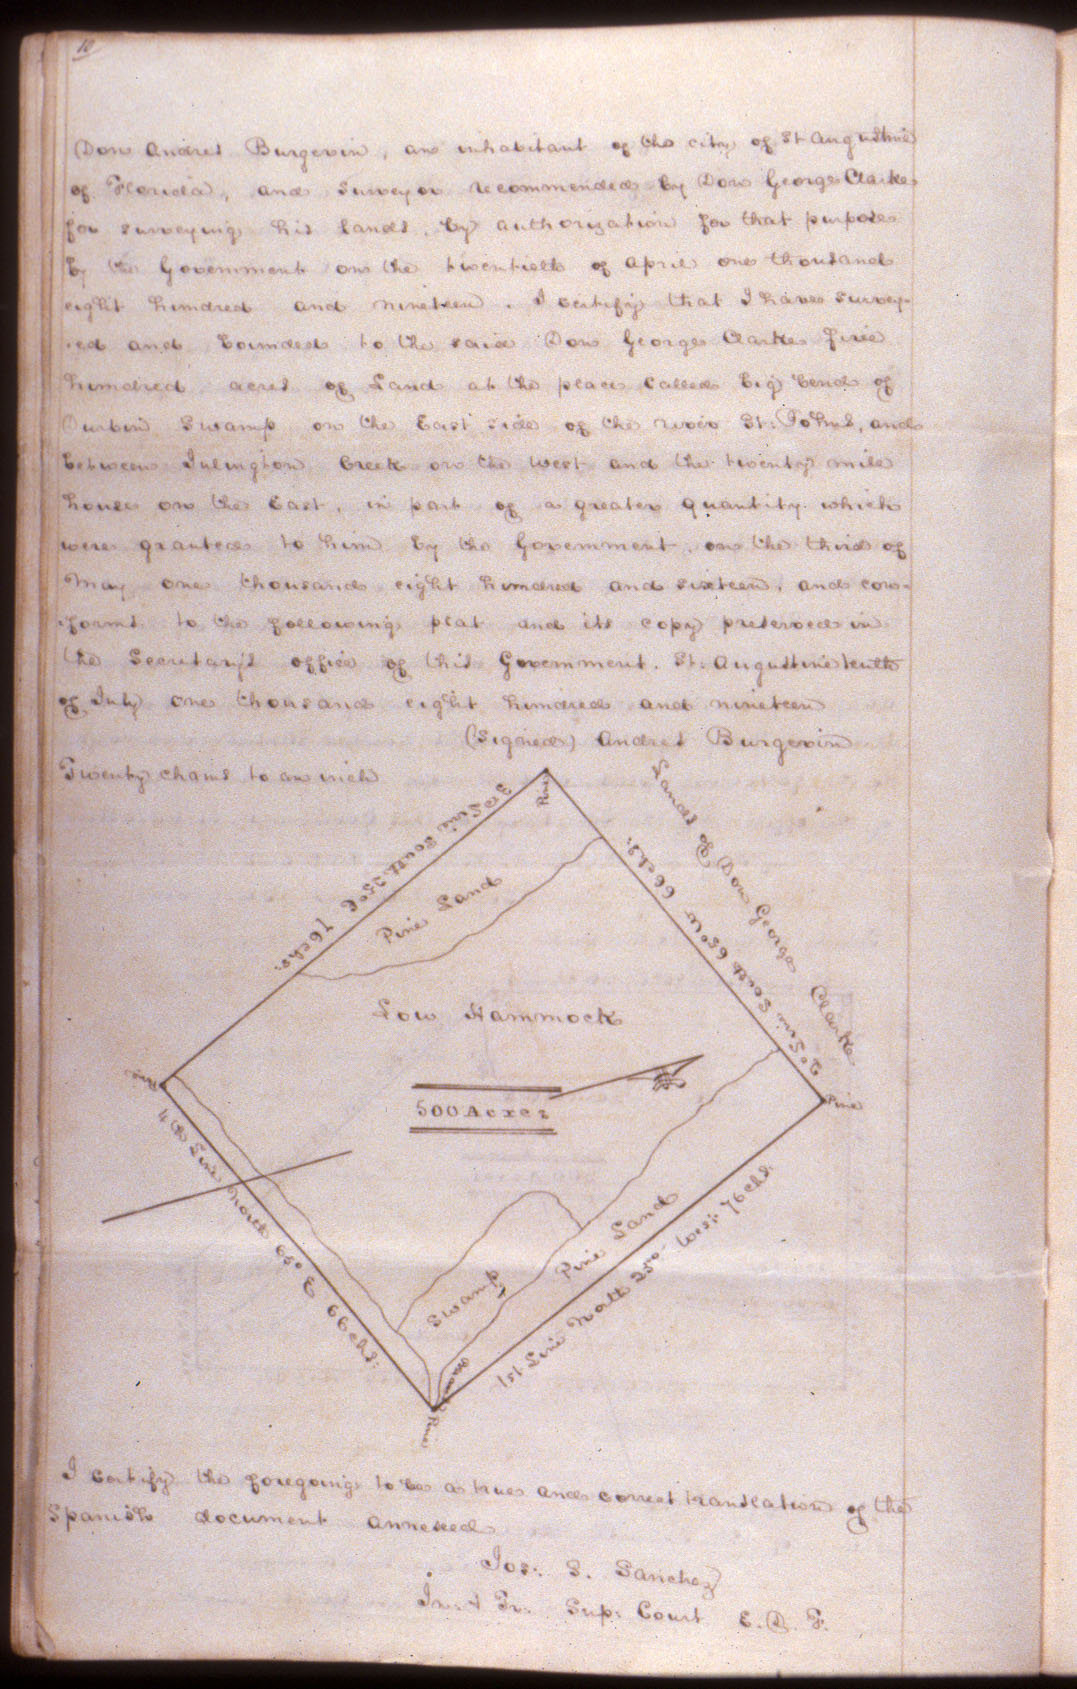 10
Don Andres Burgevin, an inhabitant of the city of St Augustine
of Florida, and surveyor recommended by Don George Clarke
for surveying his lands, by authorization for that purpose
by the Government on the twentieth of April one thousand
eight hundred and nineteen. I certify that I have survey-
-ed and bounded to the said Don George Clarke five
hundred acres of Land at the place called big bend of
Durbin Swamp on the East side of the river St: Johns, and
between Julington Creek on the West and the twenty mile
house on the East, in part of a greater quantity which
were granted to him by the Government, on the third of
May one thousand eight hundred and sixteen, and con-
-forms to the following plat and its copy preserved in
the Secretary's office of this Government. St: Augustine tenth
of July one thousand eight hundred and nineteen
(Signed) Andres Burgevin
Twenty chains to an inch
Pine
3rd Line South 25º E 76 chs.
Lands of Don George Clarke
2º Line South 65º W 66 chs:
Pine Land
Low Hammock
500 Acres
Pine
Pine
4th Line North 65º E 66 chs:
Swamp
Pine Land
1st Line North 25º West 76 chs.
Pine
I certify the foregoing to be a true and correct translation of the
Spanish document annexed
Jos: S. Sanchez
Sup: Court E. D. F.